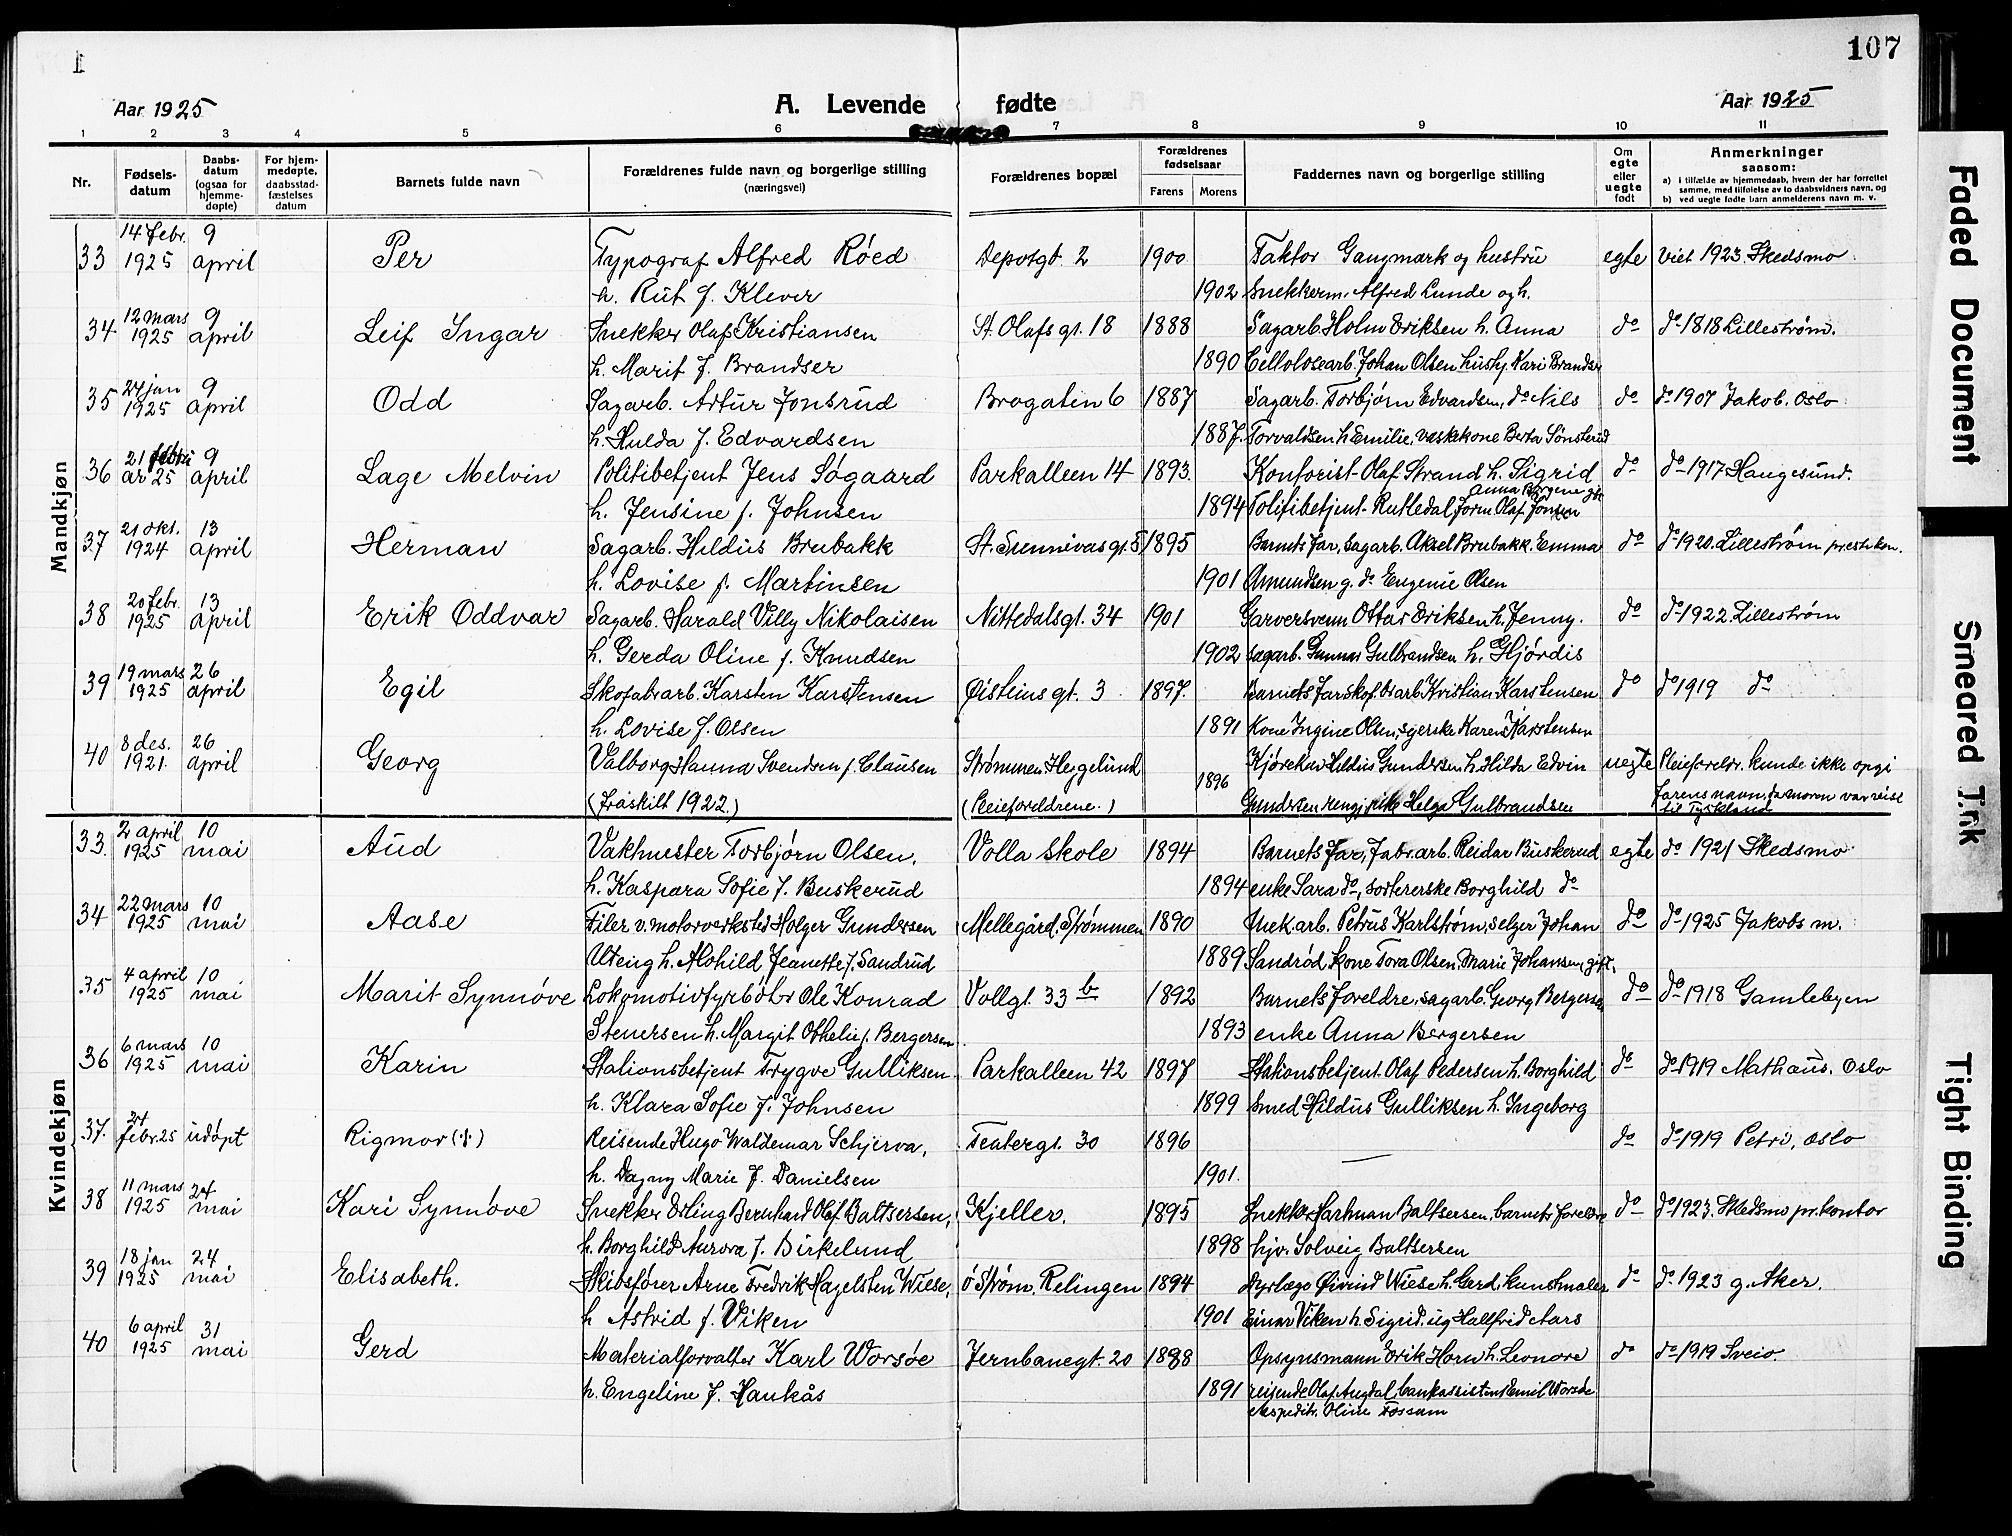 107
Aar 1925
A. Levende fødte
Aar 1925
1 2 3 4 5 6 7 8 9 10 11
Nr.
Fødsels-datum
Daabs-datum (ogsaa for hjemme-døpte)
For hjem-medøpte, daabsstad-fæstelses datum
Barnets fulde navn
Forældrenes fulde navn og borgerlige stilling (næringsvei)
Forældrenes bopæl
Forældrenes fødselsaar
Farens Morens
Faddernes navn og borgerlige stilling
Om egte eller uegte født
Anmerkninger saasom:
a) i tilfælde av hjemmedaab, hvem der har forrettet samme, med tilføielse av to daabsvidners navn, og
b) ved uegte fødte barn anmelderens navn m. v.
Mandkjøn
14 febr. 9
33 1925 april Per Typograf Alfred Røed Depotgt. 2 1900 Faktor Gangmark og hustru egte viet 1923 Skedsmo
h. Rut f. Klever 1902 Snekkerm. Alfred Lunde og h.
12 mars 9
34 1925 april Leif Ingar Snekker Olaf Kristiansen St. Olafs gt. 18 1888 Sagarb. Holm Eriksen h. Anna do do 1818 Lillestrøm.
h. Marit f. Brandser 1890 Cellolosearb. Johan Olsen hushj. Kari Brandser
24 jan 9
35 1925 april Odd Sagarb. Artur Jonsrud Brogaten 6 1887 Sagarb. Torbjørn Edvardsen, do Nils do do 1907 Jakob. Oslo
h. Hulda f. Edvardsen 1887. Torvaldsen h Emilie, vaskekone Berta Sønsterud
21 febru 9
36 ar 25 april Lage Melvin Politibetjent Jens Søgaard Parkalleen 14 1893. Kontorist Olaf Strand h. Sigrid do do 1917 Haugesund.
h. Jensine f. Johnsen 1894 Politibetjent Rutledal, form. Olaf Jonsen
21 okt. 13
37 1924 april Herman Sagarb. Hildus Brubakk St. Sunnivas gt. 5 1895 Barnets far, sagarb. Aksel Brubakk. Emma do do 1920. Lillestrøm prestekon.
h. Lovise f. Martinsen 1901 Amundsen g. do Eugenie Olsen
20 febr. 13
38 1925 april Erik Oddvar Sagarb. Harald Villy Nikolaisen Nittedalsgt. 34 1901 Garversvenn Ottar Eriksen h. Jenny. do do 1922. Lillestrøm
h. Gerda Oline f. Knudsen 1902 sagarb. Gunnar Gulbrandsen h. Hjørdis
19 mars 26
39 1925 april Egil Skofabr.arb. Karsten Karstensen Øisteins gt. 3 1897. Barnets far skof.br.arb. Kristian Karstensen do do 1919 do
h. Lovise f. Olsen 1891 Kone Ingine Olsen, syerske Karen Karstensen
8 des. 26
40 1921. april Georg Valborg Hanna Svendsen f. Clausen Strømmen, Hejgelund 1896 Kjørekar Hildus Gundersen h. Hilda Edvin uegte Pleiefordr. kunde ikke opgi
(fraskilt 1922.) (Pleieforældrene.) Gundersen rengj. enke Helga Gulbrandsen farens navn, da moren var reist
til Tyskland
Kvindekjøn
2 april 10
33. 1925 mai Aud Vaktmester Torbjørn Olsen. Volla skole 1894 Barnets far, fabr.arb. Reidar Buskerud egte do 1921 Skedsmo
h. Kaspara Sofie f. Buskerud 1894 enke Sara do, sortererske Borghild do
22 mars 10
34 1925 mai Aase Filer v. motorverksted Holger Gundersen Mellegård, Strømmen 1890 Snek. arb. Petrus Karlstrøm, selger Johan do do 1925 Jakobs m.
Uteng h. Alohild Jeanette f. Sandrud 1889 Sandrød, kone Tora Olsen, Marie Johansen, gift.
4 april 10
35 1925 mai Marit Synnøve Lokomotivfyrbøter Ole Konrad Vollgt. 33 b 1892 Barnets foreldre, sagarb. Georg Bergersen do do 1918 Gamlebyen
Stenersen h. Margit Othelie f. Bergersen 1893 enke Anna Bergersen
6 mars 10
36 1925 mai Karin Stationsbetjent Trygve Gulliksen Parkalleen 42 1897 Stationsbetjent Olaf Pedersen h. Borghild do do 1919 Mathæus. Oslo
h. Klara Sofie f. Johnsen 1899 Smed Hildus Gulliksen h. Ingeborg
24
37. febr. 25 udøpt Rigmor (†) Reisende Hugo Waldemar Schjerva, Teatergt. 30 1896 — do do 1919 Petri, Oslo
h. Dagny Marie f. Danielsen 1901.
11 mars 24
38 1925 mai Kari Synnøve Snekker Erling Bernhard Olaf Baltsersen, Kjeller. 1895 Snekker Hartman Baltsersen, barnets foreldre do do 1923. Skedsmo pr.kontor
h. Borghild Aurora f. Birkelund 1898 hjv. Solveig Baltsersen
18 jan 24
39 1925 mai Elisabeth. Skibsfører Arne Fredrik Hagelsten Wiese, ø Strøm. Relingen 1894 Dyrlæge Øivind Wiese h. Gerd, kunstmaler do do 1923 g. Aker.
h Astrid f. Viken 1901 Einar Viken h. Sigrid. ug Hallfrid Aars
6 april 31
40 1925 mai Gerd Materialforvalter Karl Worsøe Jernbanegt. 20 1888 Opsynsmann Erik Horn h. Leonore do do 1919 Sveio.
h. Engeline f. Haukås 1891 reisende Olaf Augdal, bankassistent Emil Worsøe
ekspeditr. Oline Fossum
Faded Document
Smeared Ink
Tight Binding